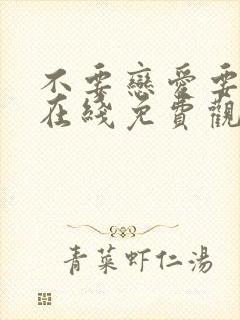 不要戀愛要
在綫免費觀
青菜虾仁湯